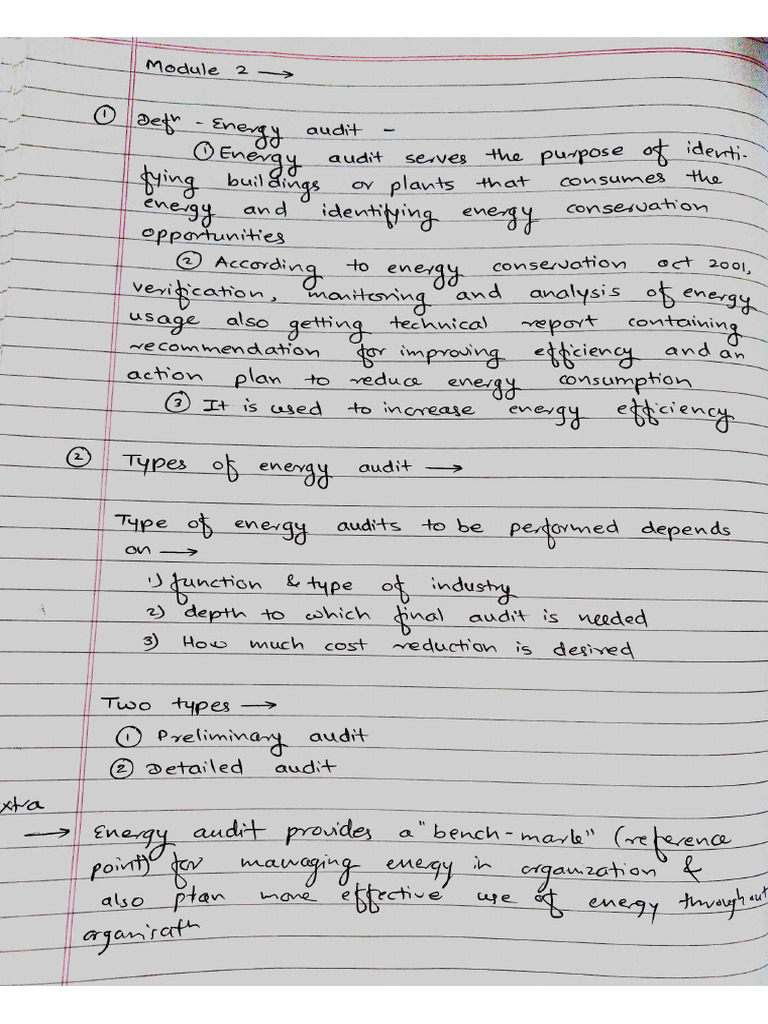 Module 2 →
① Defⁿ - Energy audit -
① Energy audit serves the purpose of identi-
fying buildings or plants that consumes the
energy and identifying energy conservation
opportunities
② According to energy conservation act 2001,
verification, monitoring and analysis of energy
usage also getting technical report containing
recommendation for improving efficiency and an
action plan to reduce energy consumption
③ It is used to increase energy efficiency
② Types of energy audit →
Type of energy audits to be performed depends
on →
1) function & type of industry
2) depth to which final audit is needed
3) How much cost reduction is desired
Two types →
① Preliminary audit
② Detailed audit
xtra
→ Energy audit provides a "bench-mark" (reference
point) for managing energy in organization &
also plan more effective use of energy throughout
organisatⁿ